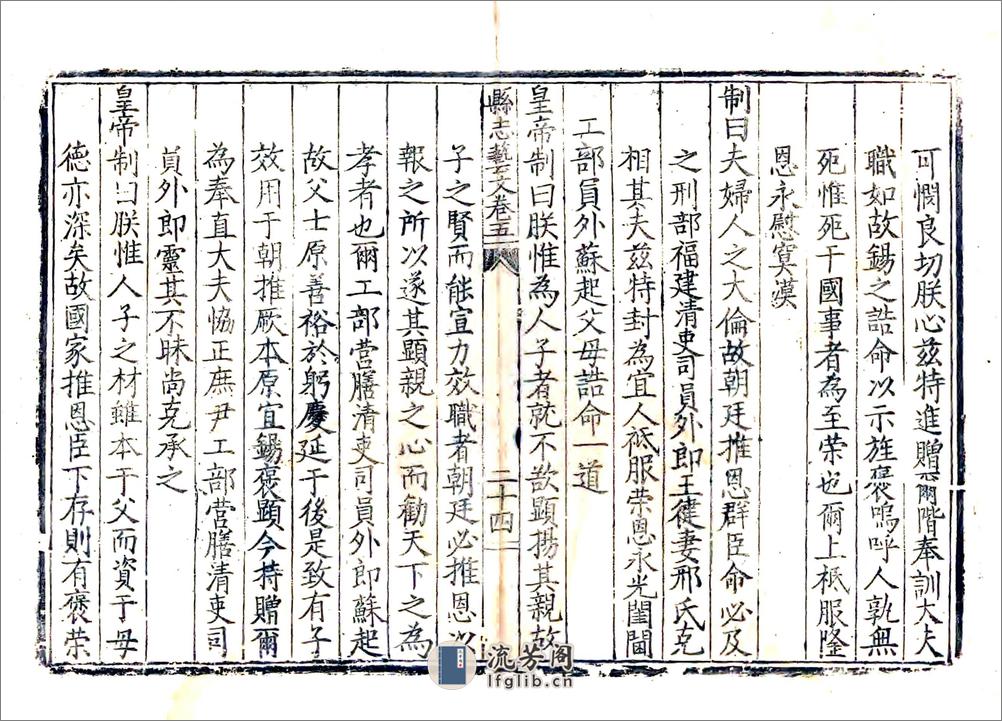 可憫良切朕心茲特進贈爾階奉訓大夫
職如故鍚之誥命以示旌褒嗚呼人孰無
死惟死于國事者為至荣也爾上祗服隆
恩永慰寞漠
制曰夫婦人之大倫故朝廷推恩群臣命必及
之刑部福建清吏司員外郎王健妻邢氏克
相其夫茲特封為宜人祗服荣恩永光閨閫
工部員外蘇起父母誥命一道
皇帝制曰朕惟為人子者孰不欲顯揚其親故
縣志藝文卷五
二十四
子之賢而能宣力效職者朝廷必推恩以
報之所以遂其顯親之心而勸天下之為
孝者也爾工部營膳清吏司員外郎蘇起
故父士原善裕於躬慶延于後是致有子
效用于朝推厥本原宜鍚褒顯今特贈爾
為奉直大夫協正庶尹工部營膳清吏司
員外郎靈其不昧尚克承之
皇帝制曰朕惟人子之材雖本于父而資于母
德亦深矣故國家推恩臣下存則有褒荣
流芳阁
lfglib.cn